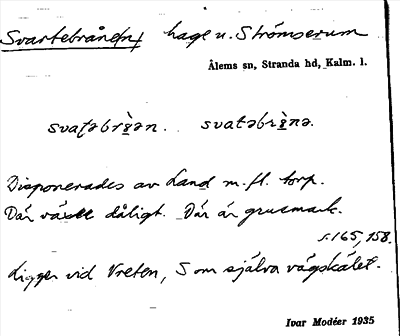 Svartebråne(n) hage u. Strömserum
Ålems sn, Stranda hd, Kalm. l.
svaṭəbrè̱ən. svatəbrè̱nə.
Disponerades av Land m. fl. torp.
Där växte dåligt. Där är grusmark.
s. 165, 158.
Ligger vid Vreten, S om själva vägskälet.
Ivar Modéer 1935